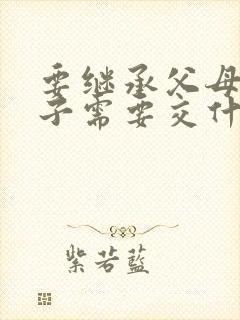 要继承父母
子需要交什
紫若蓝